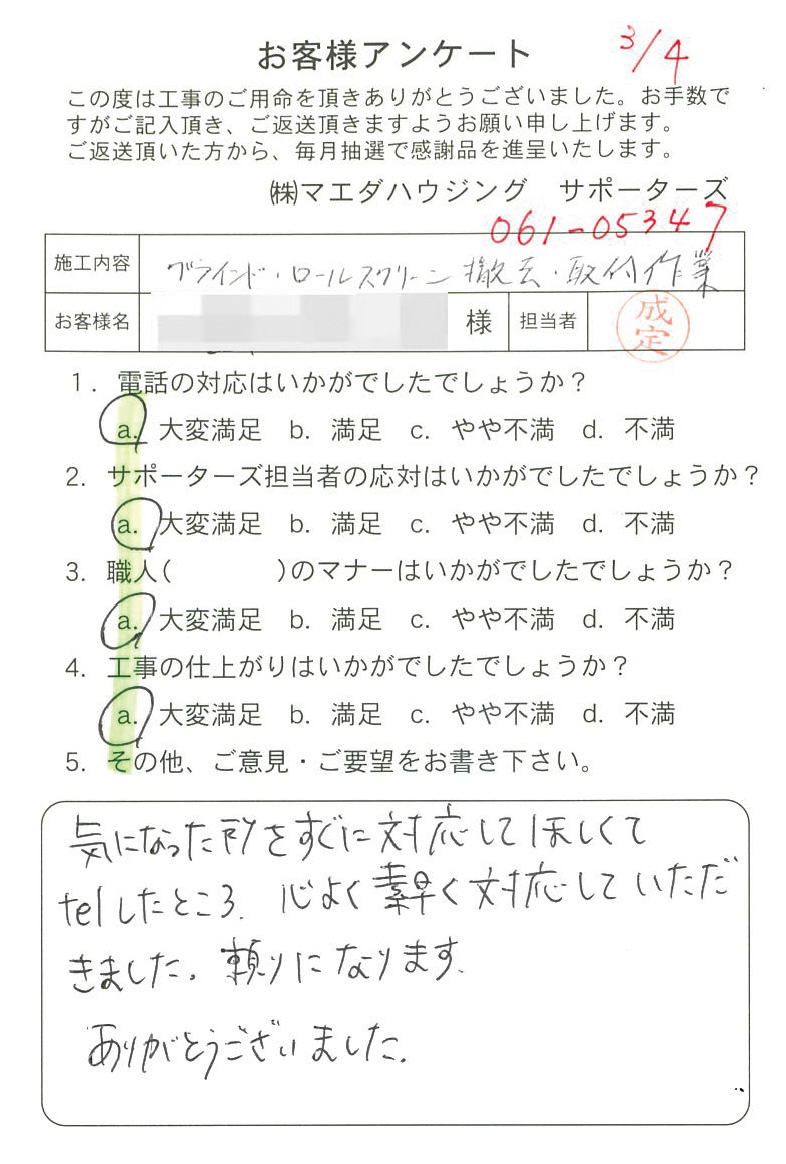 お客様アンケート
3/4
この度は工事のご用命を頂きありがとうございました。お手数で
すがご記入頂き、ご返送頂きますようお願い申し上げます。
ご返送頂いた方から、毎月抽選で感謝品を進呈いたします。
㈱マエダハウジング　サポーターズ
061-05347
施工内容 ブラインド・ロールスクリーン 撤去・取付作業
お客様名 様 担当者 成定
1. 電話の対応はいかがでしたでしょうか？
a. 大変満足 b. 満足 c. やや不満 d. 不満
2. サポーターズ担当者の応対はいかがでしたでしょうか？
a. 大変満足 b. 満足 c. やや不満 d. 不満
3. 職人( )のマナーはいかがでしたでしょうか？
a. 大変満足 b. 満足 c. やや不満 d. 不満
4. 工事の仕上がりはいかがでしたでしょうか？
a. 大変満足 b. 満足 c. やや不満 d. 不満
5. その他、ご意見・ご要望をお書き下さい。
気になった所をすぐに対応してほしくて
telしたところ、心よく素早く対応していただ
きました。頼りになります。
ありがとうございました。